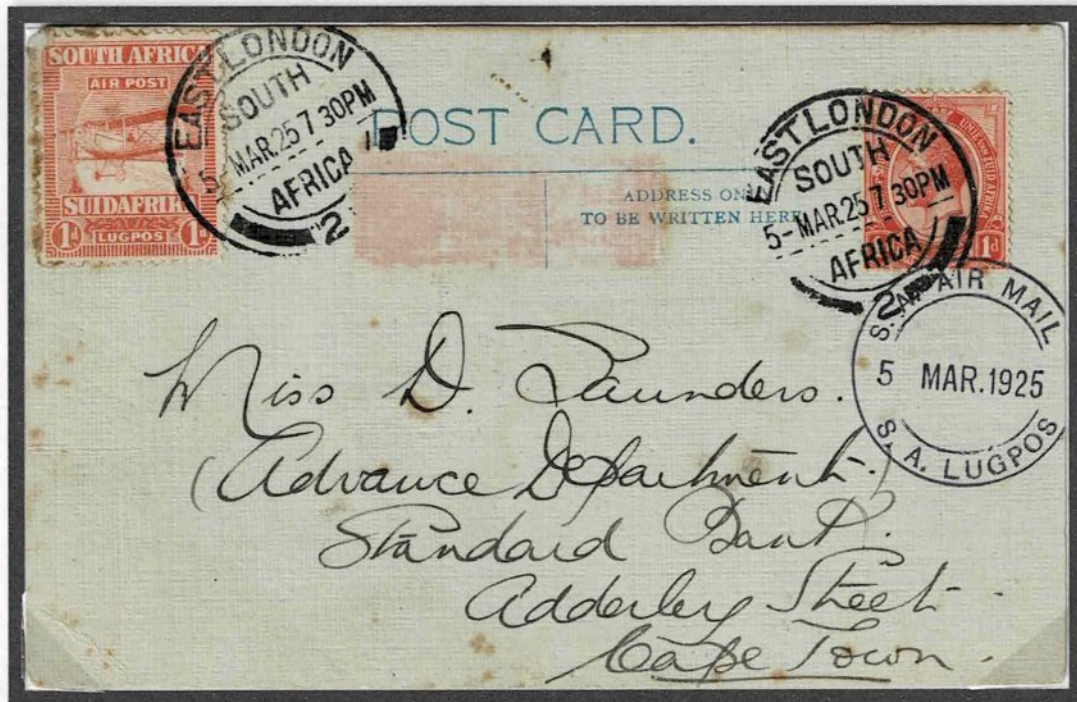 SOUTH AFRICA
AIR POST
SUIDAFRIKA
1d LUGPOS 1d
EAST LONDON
SOUTH
5-MAR.25 7 30PM
AFRICA
2
POST CARD.
ADDRESS ONLY
TO BE WRITTEN HERE.
EAST LONDON
SOUTH
5-MAR.25 7 30PM
AFRICA
2
UNIE VAN ZUID AFRIKA
1d
S. A. AIR MAIL
5 MAR.1925
S. A. LUGPOS
Miss D. Saunders.
(Advance Department.)
Standard Bank.
Adderley Street.
Cape Town.